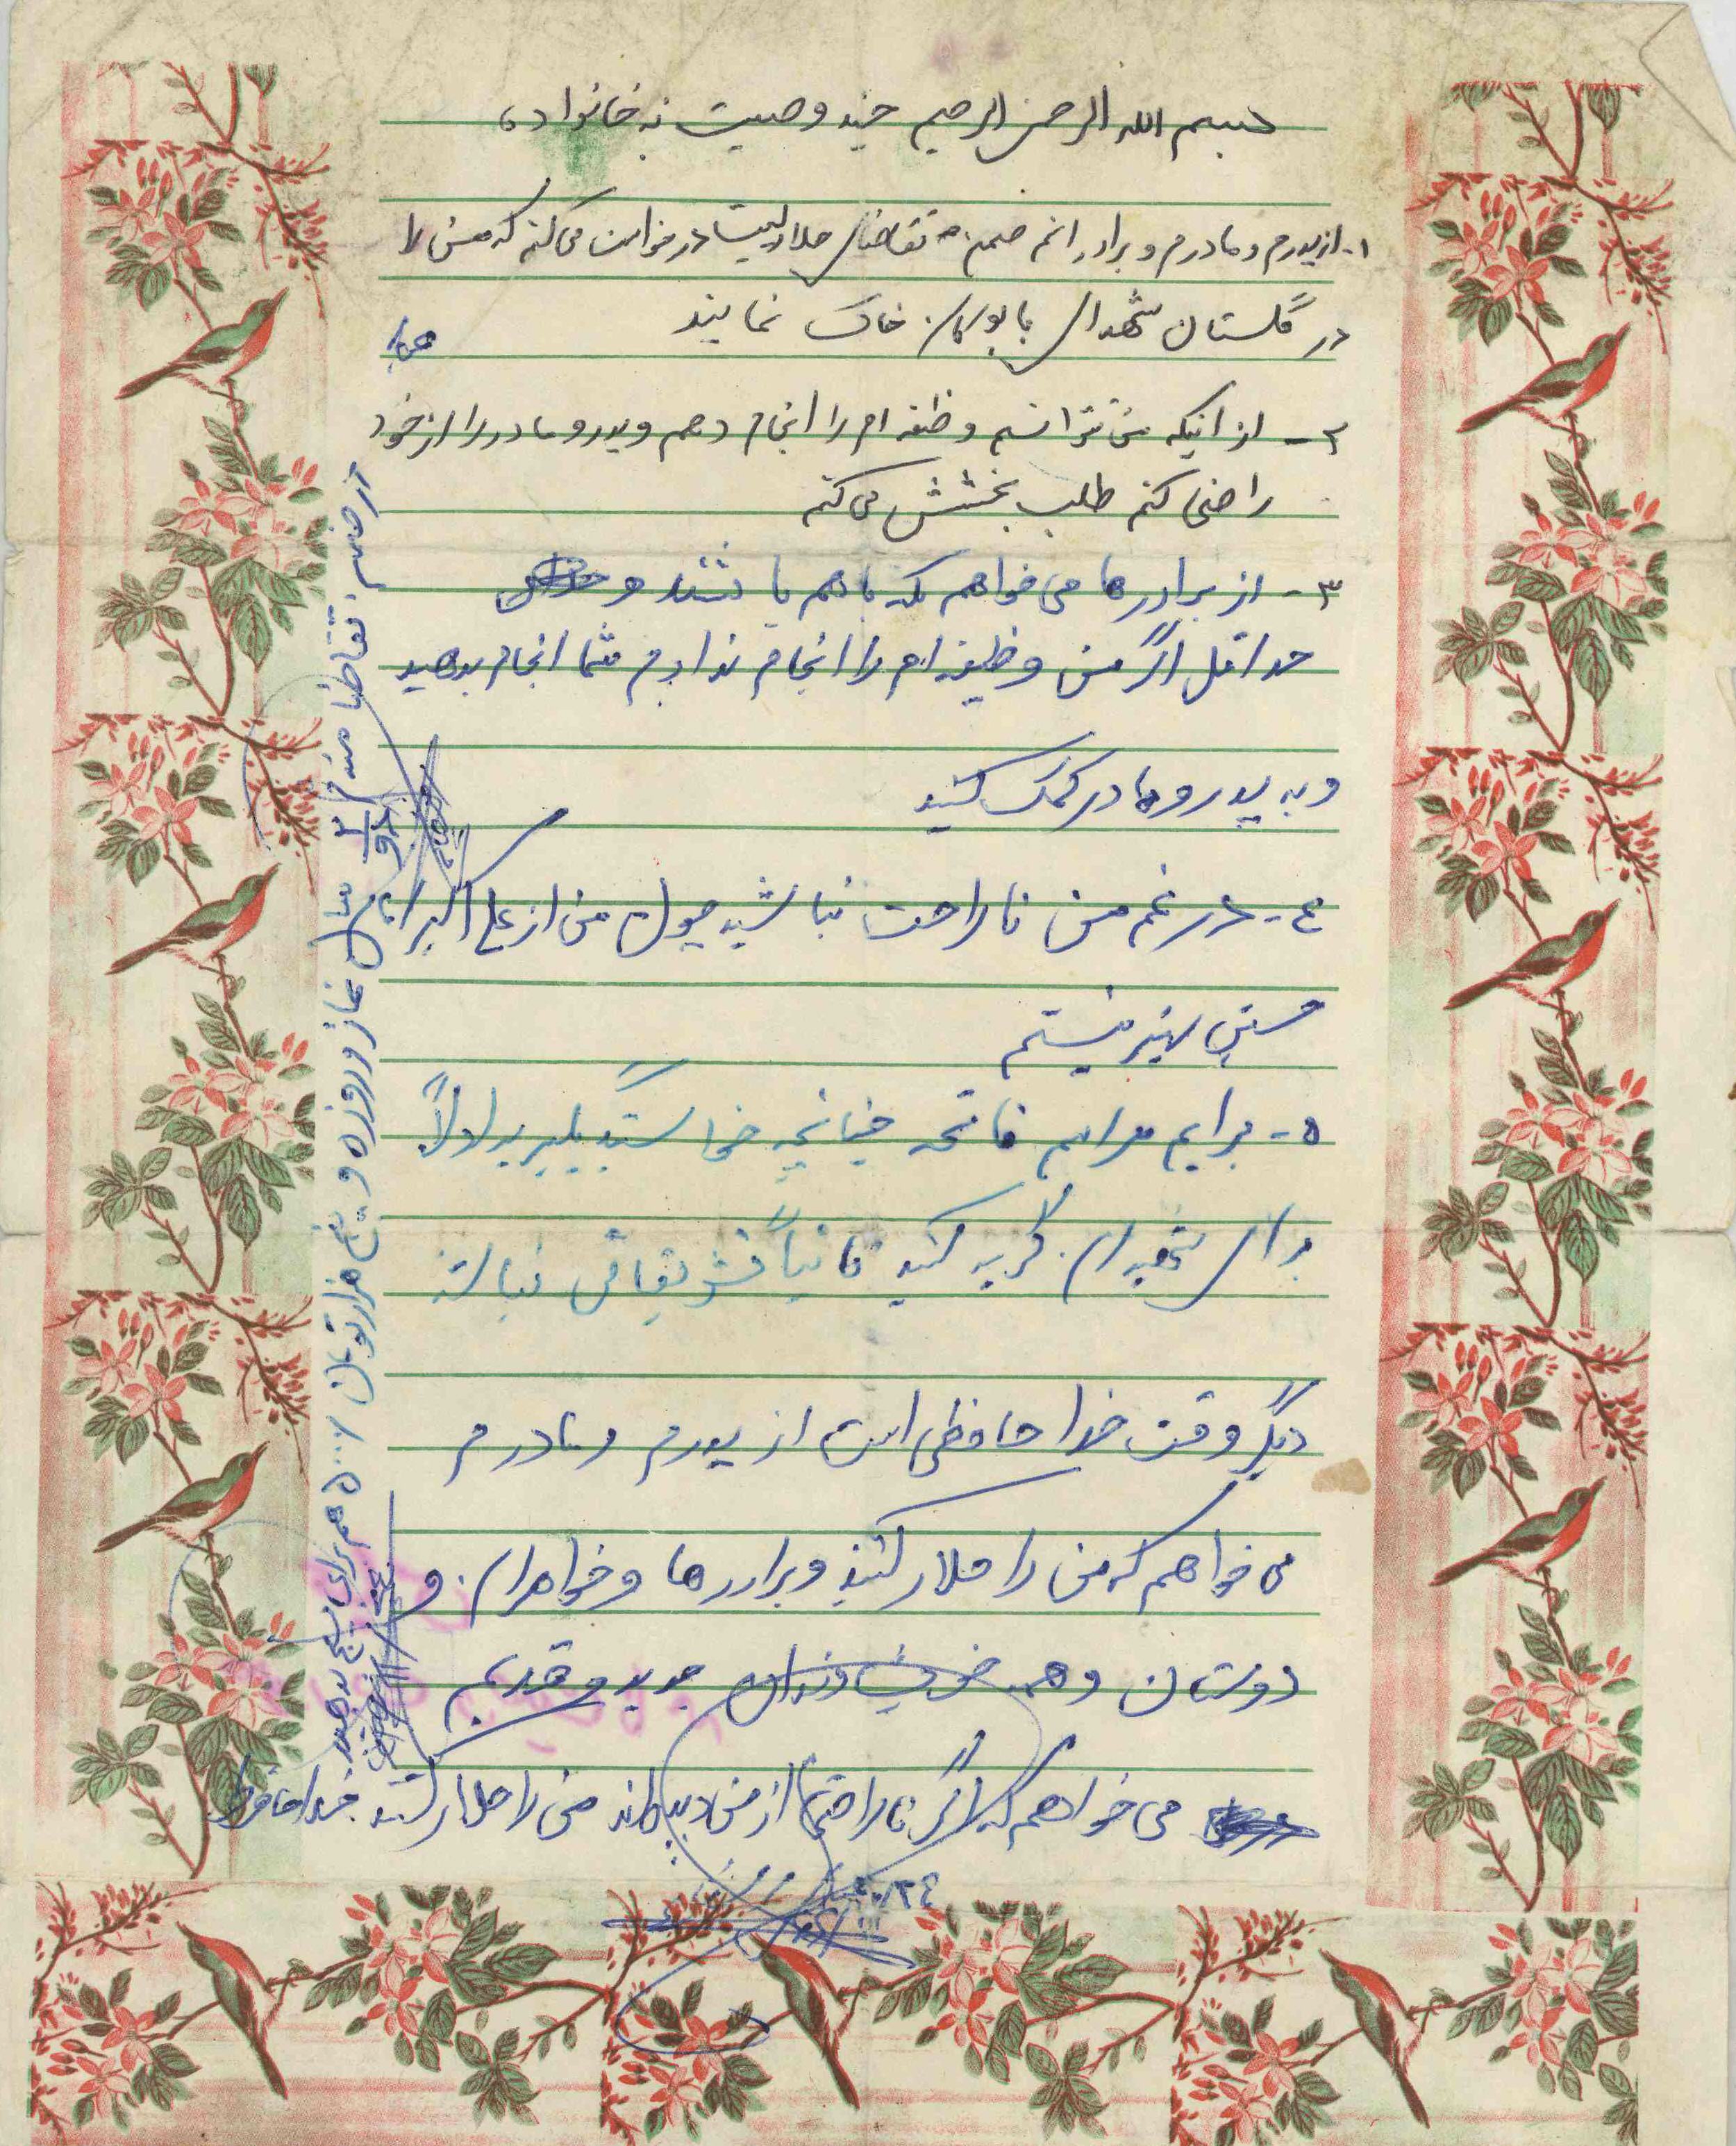 بسم الله الرحمن الرحیم چند وصیت به خانواده
۱- از پدرم و مادرم و برادرانم ضمن تقاضای حلالیت درخواست می کنم که من را
در گلستان شهدای خاک نمایند
۲- از اینکه نتوانستم وظیفه ام را انجام دهم و پدر و مادر را از خود
راضی کنم طلب بخشش می کنم
۳- از برادرها می خواهم که با هم باشند و
حداقل اگر من وظیفه ام را انجام ندادم شما انجام بدهید
و به پدر و مادر کمک کنید
۴- در غم من ناراحت نباشید چون من از علی اکبر امام
حسین بهتر نیستم
۵- برایم مراسم فاتحه چنانچه خواستید بگیرید اولاً
برای شهیدان گریه کنید ثانیاً تشریفاتی نباشد
دیگر وقت خدا حافظی است از پدرم و مادرم
می خواهم که من را حلال کنند و برادرها و خواهران و
دوستان و همه خویشاوندان جدید و قدیم
می خواهم که اگر ناراحتی از من دیده اند من را حلال کنند خدا حافظ
در ضمن تقاضا مندم ۳ سال نماز و روزه و پنج هزار تومان ۵۰۰۰ هم برای بسیج بدهید